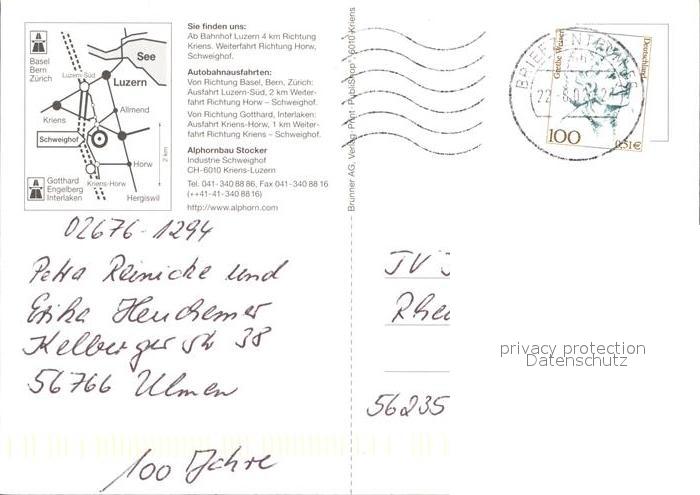 Sie finden uns:
Ab Bahnhof Luzern 4 km Richtung
Kriens. Weiterfahrt Richtung Horw,
Schweighof.
Autobahnausfahrten:
Von Richtung Basel, Bern, Zürich:
Ausfahrt Luzern-Süd, 2 km Weiter-
fahrt Richtung Horw – Schweighof.
Von Richtung Gotthard, Interlaken:
Ausfahrt Kriens-Horw, 1 km Weiter-
fahrt Richtung Kriens – Schweighof.
Alphornbau Stocker
Industrie Schweighof
CH-6010 Kriens-Luzern
Tel. 041-340 88 86, Fax 041-340 88 16
(++41-41-340 88 16)
http://www.alphorn.com
Basel
Bern
Zürich
See
Luzern-Süd
Luzern
Allmend
Kriens
Schweighof
2 km
Horw
Kriens-Horw
Gotthard
Engelberg
Interlaken
Hergiswil
Brunner AG, Verlag·Print·PubliShop, 6010 Kriens
Deutschland
100
0,51€
02676-1294
Petra Reinicke und
Erika Heuchemer
Kelberger Str 38
56766 Ulmen
100 Jahre
56235
privacy protection
Datenschutz